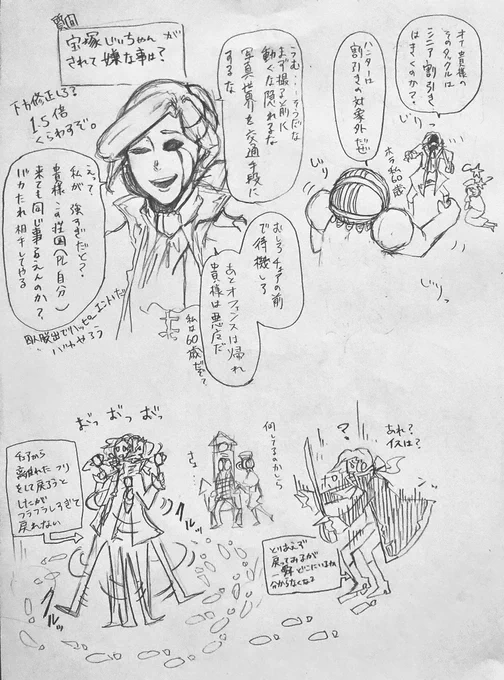 質問
宝塚じいちゃんが
されて嫌な事は?
オイ貴様の
そのタックルは
シニア割引き
はきくのか?
ハンターは
割引きの
対象外だぜ
ホラ私60歳
じりっ
じり
じりっ
うむ……そうだな
まず撮る前に
動くな隠れるな
写真世界を
交通手段に
するな
下方修正しろ?
1.5倍
くらわすぞ。
えっ?
私が強すぎだと?
貴様この荘園(PL自分)
来ても同じ事言えんのか?
バカたれ相手してやる
むしろチェアの前
で待機しろ
あとオフェンスは帰れ
貴様は悪店だ
私は60歳だぞ?
おっ おっ おっ
チェアから
離れたフリ
をして戻ろうと
したが
フラフラしすぎて
戻れない
グルッ
グルッ
何してるのかしら
さぁ…
?
あれ?
イスは?
とりあえず
戻ってみるが
一瞬どこにいるか
分からなくなる